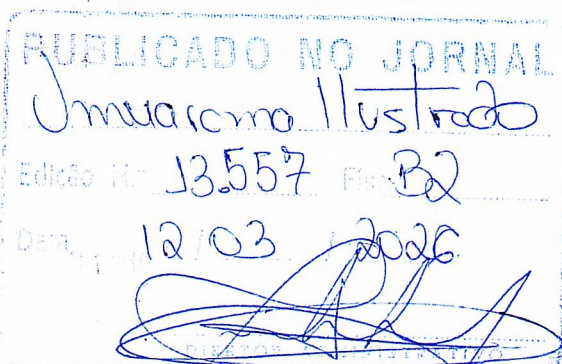 PUBLICADO NO JORNAL
Umuarama Ilustrado
Edição N.º 13.557 Fls. B2
Data 12/03/2026